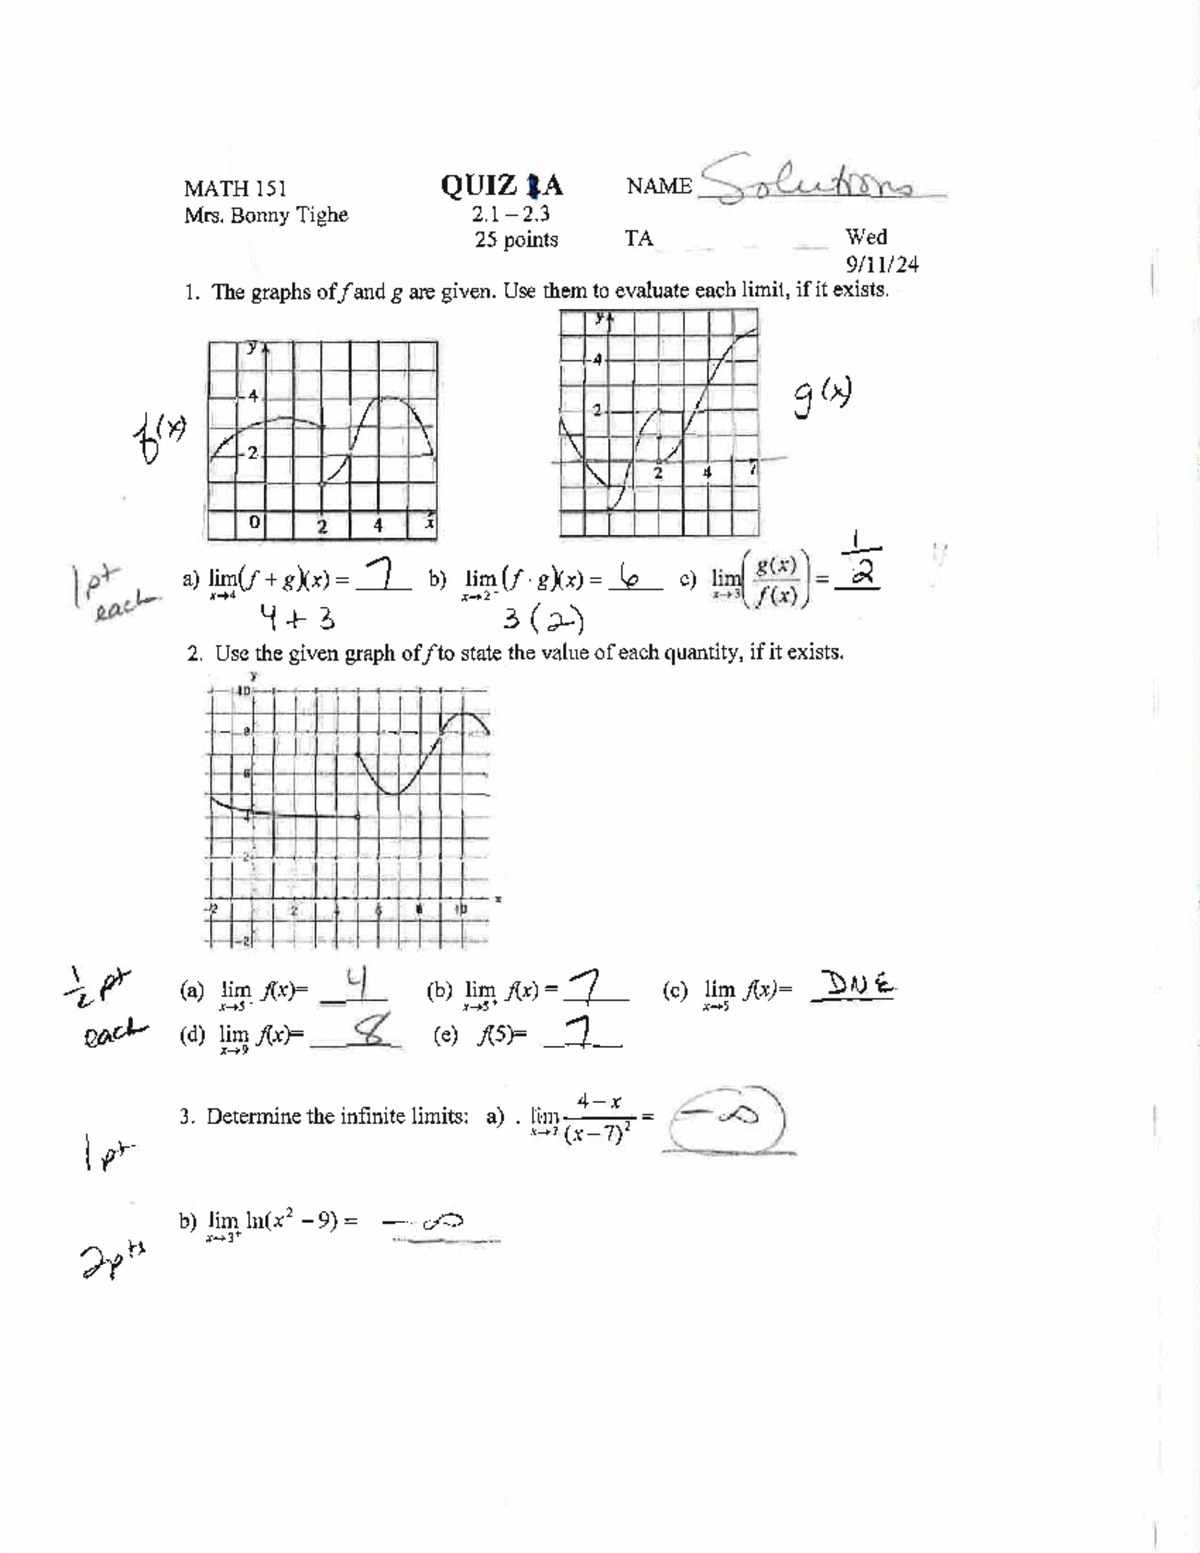 MATH 151 QUIZ A NAME Solutions
Mrs. Bonny Tighe 2.1 – 2.3
25 points TA Wed
9/11/24
1. The graphs of f and g are given. Use them to evaluate each limit, if it exists.
y
4
2
0 2 4 x
f(x)
y
4
2
2 4
g(x)
1 pt each
a) lim x→4 (f + g)(x) = 7 b) lim x→2⁻ (f · g)(x) = 6 c) lim x→3 (g(x)/f(x)) = 1/2
4 + 3 3(2)
2. Use the given graph of f to state the value of each quantity, if it exists.
y
10
8
6
4
2
-2 2 4 6 8 10 x
-2
1/2 pt each
(a) lim x→5⁻ f(x)= 4 (b) lim x→5⁺ f(x) = 7 (c) lim x→5 f(x)= DNE
(d) lim x→9 f(x)= 8 (e) f(5)= 7
3. Determine the infinite limits: a) . lim x→7 4 – x / (x – 7)² = –∞
1 pt
b) lim x→3⁺ ln(x² – 9) = –∞
2 pts